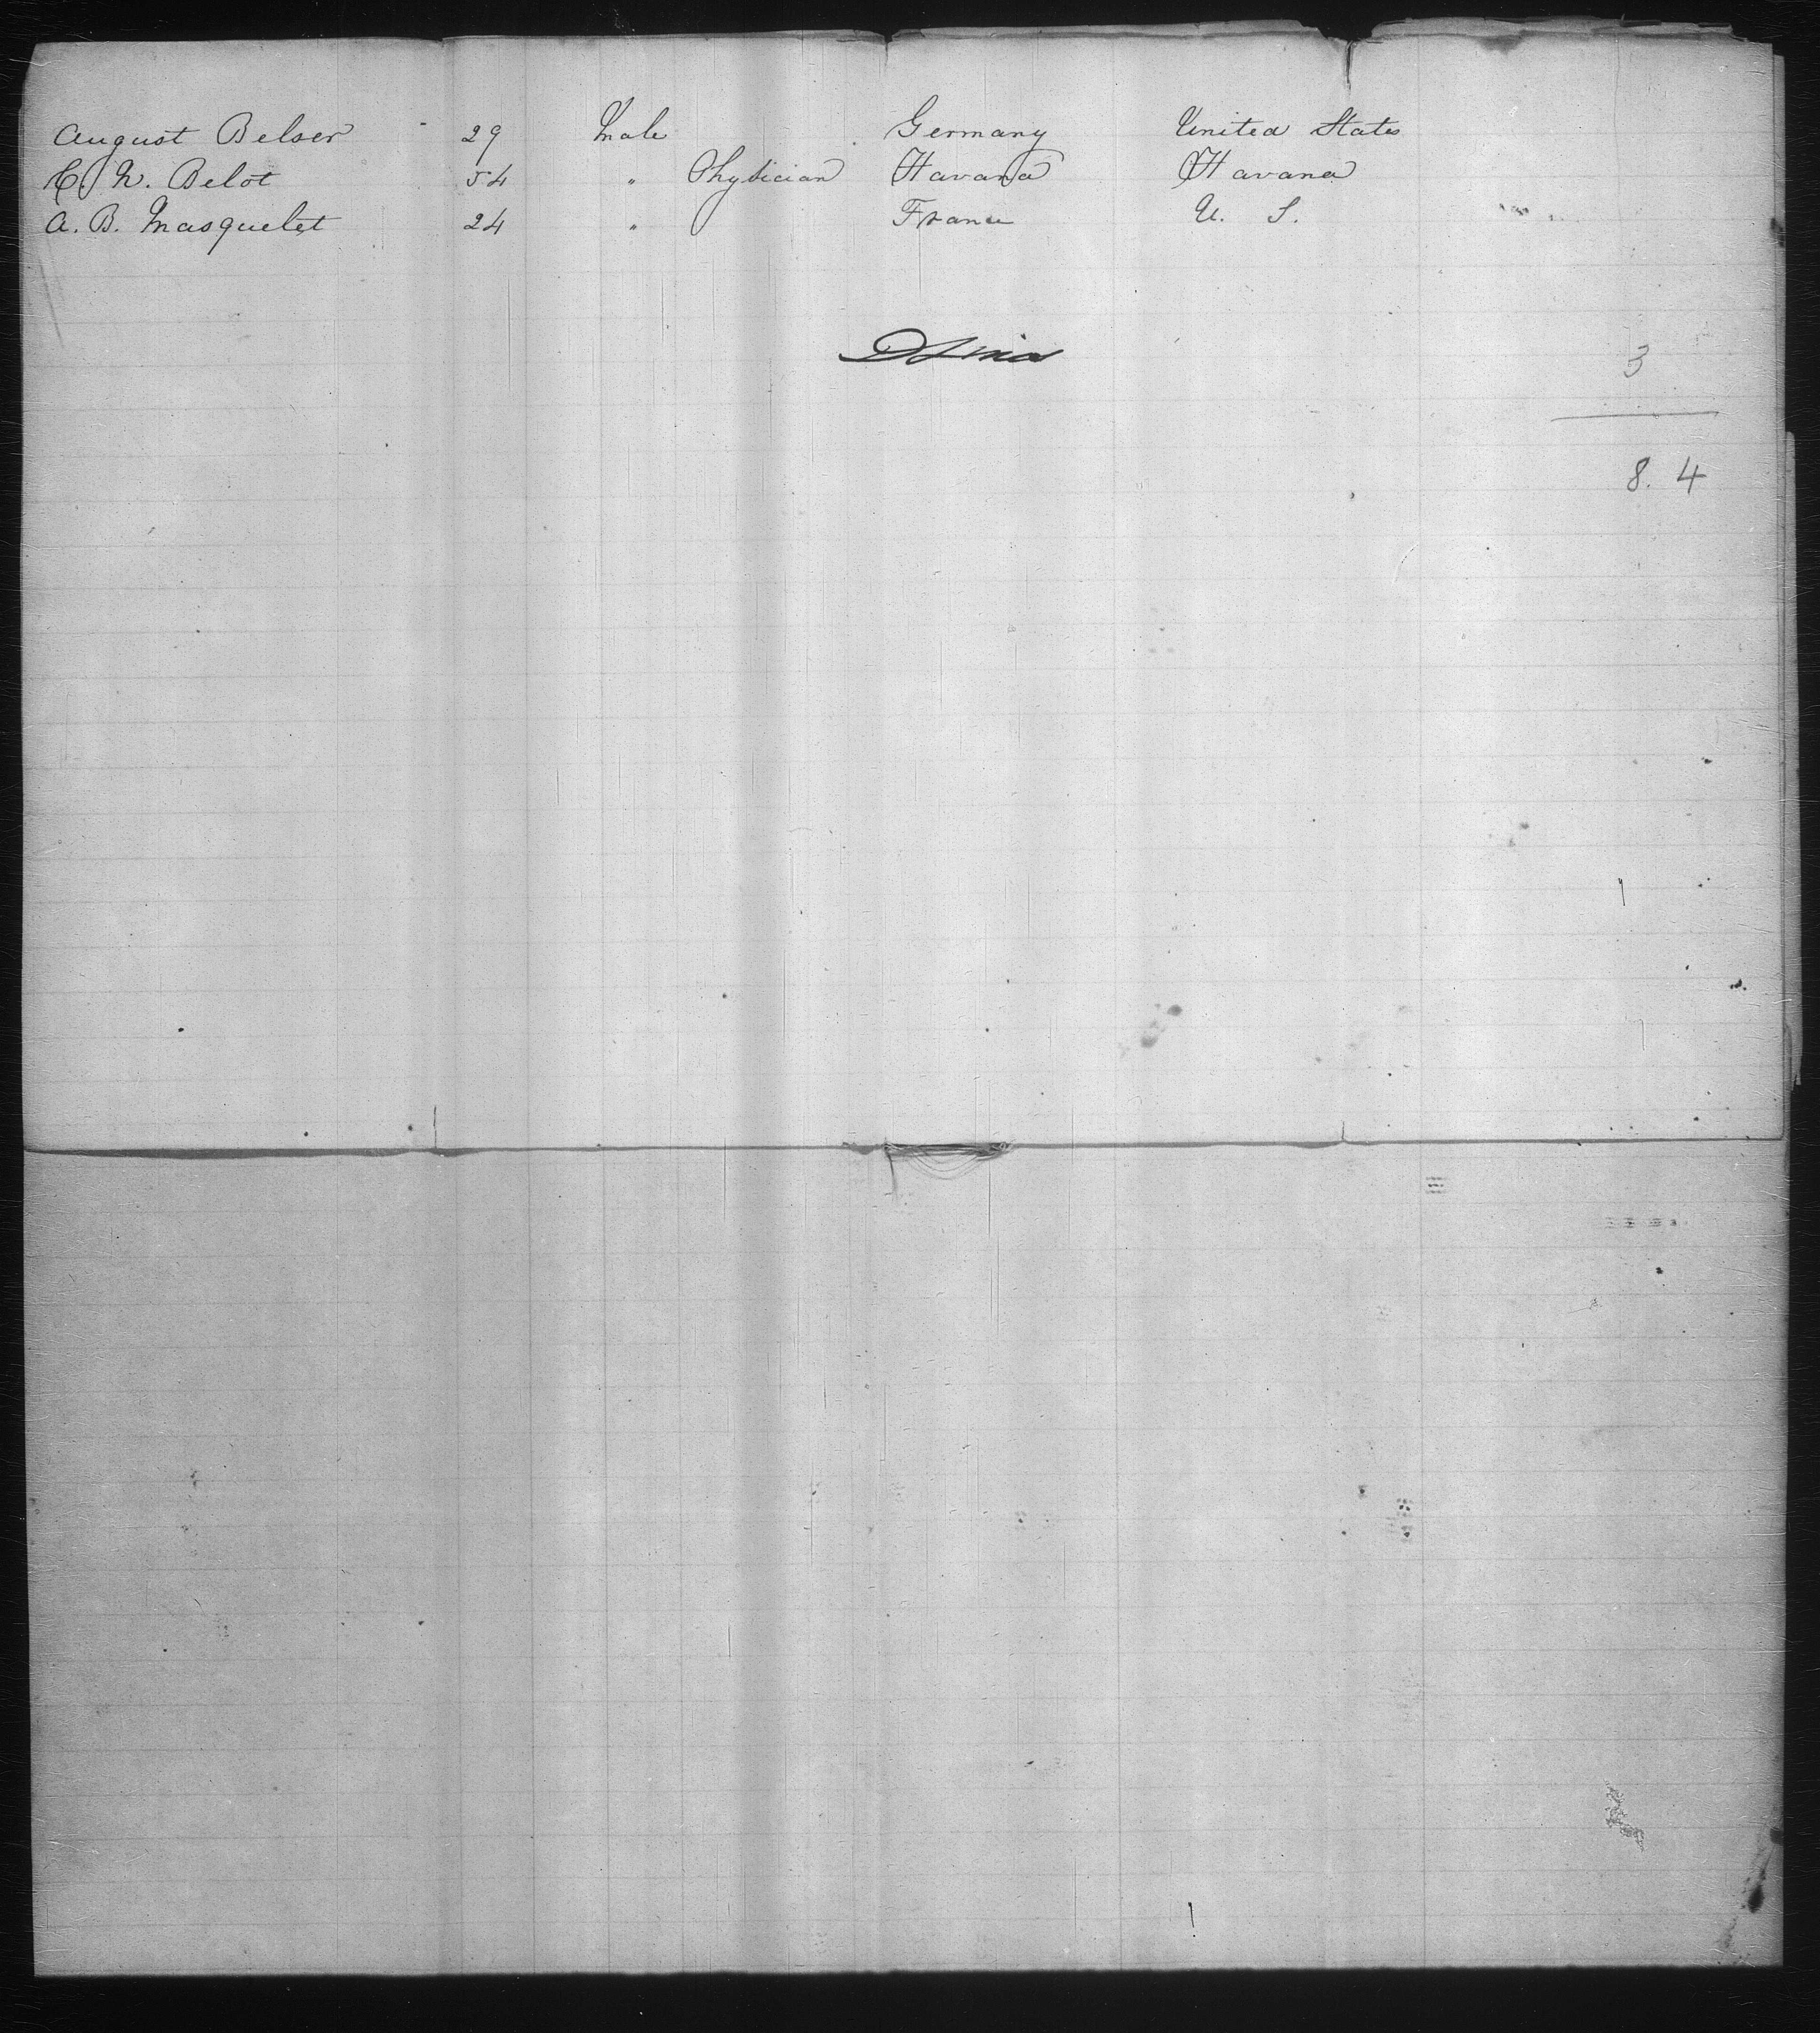 August Belser 29 Male Germany United States
C. N. Belot 54 " Physician Havana Havana
A. B. Masquelet 24 " France U. S.
3
8. 4